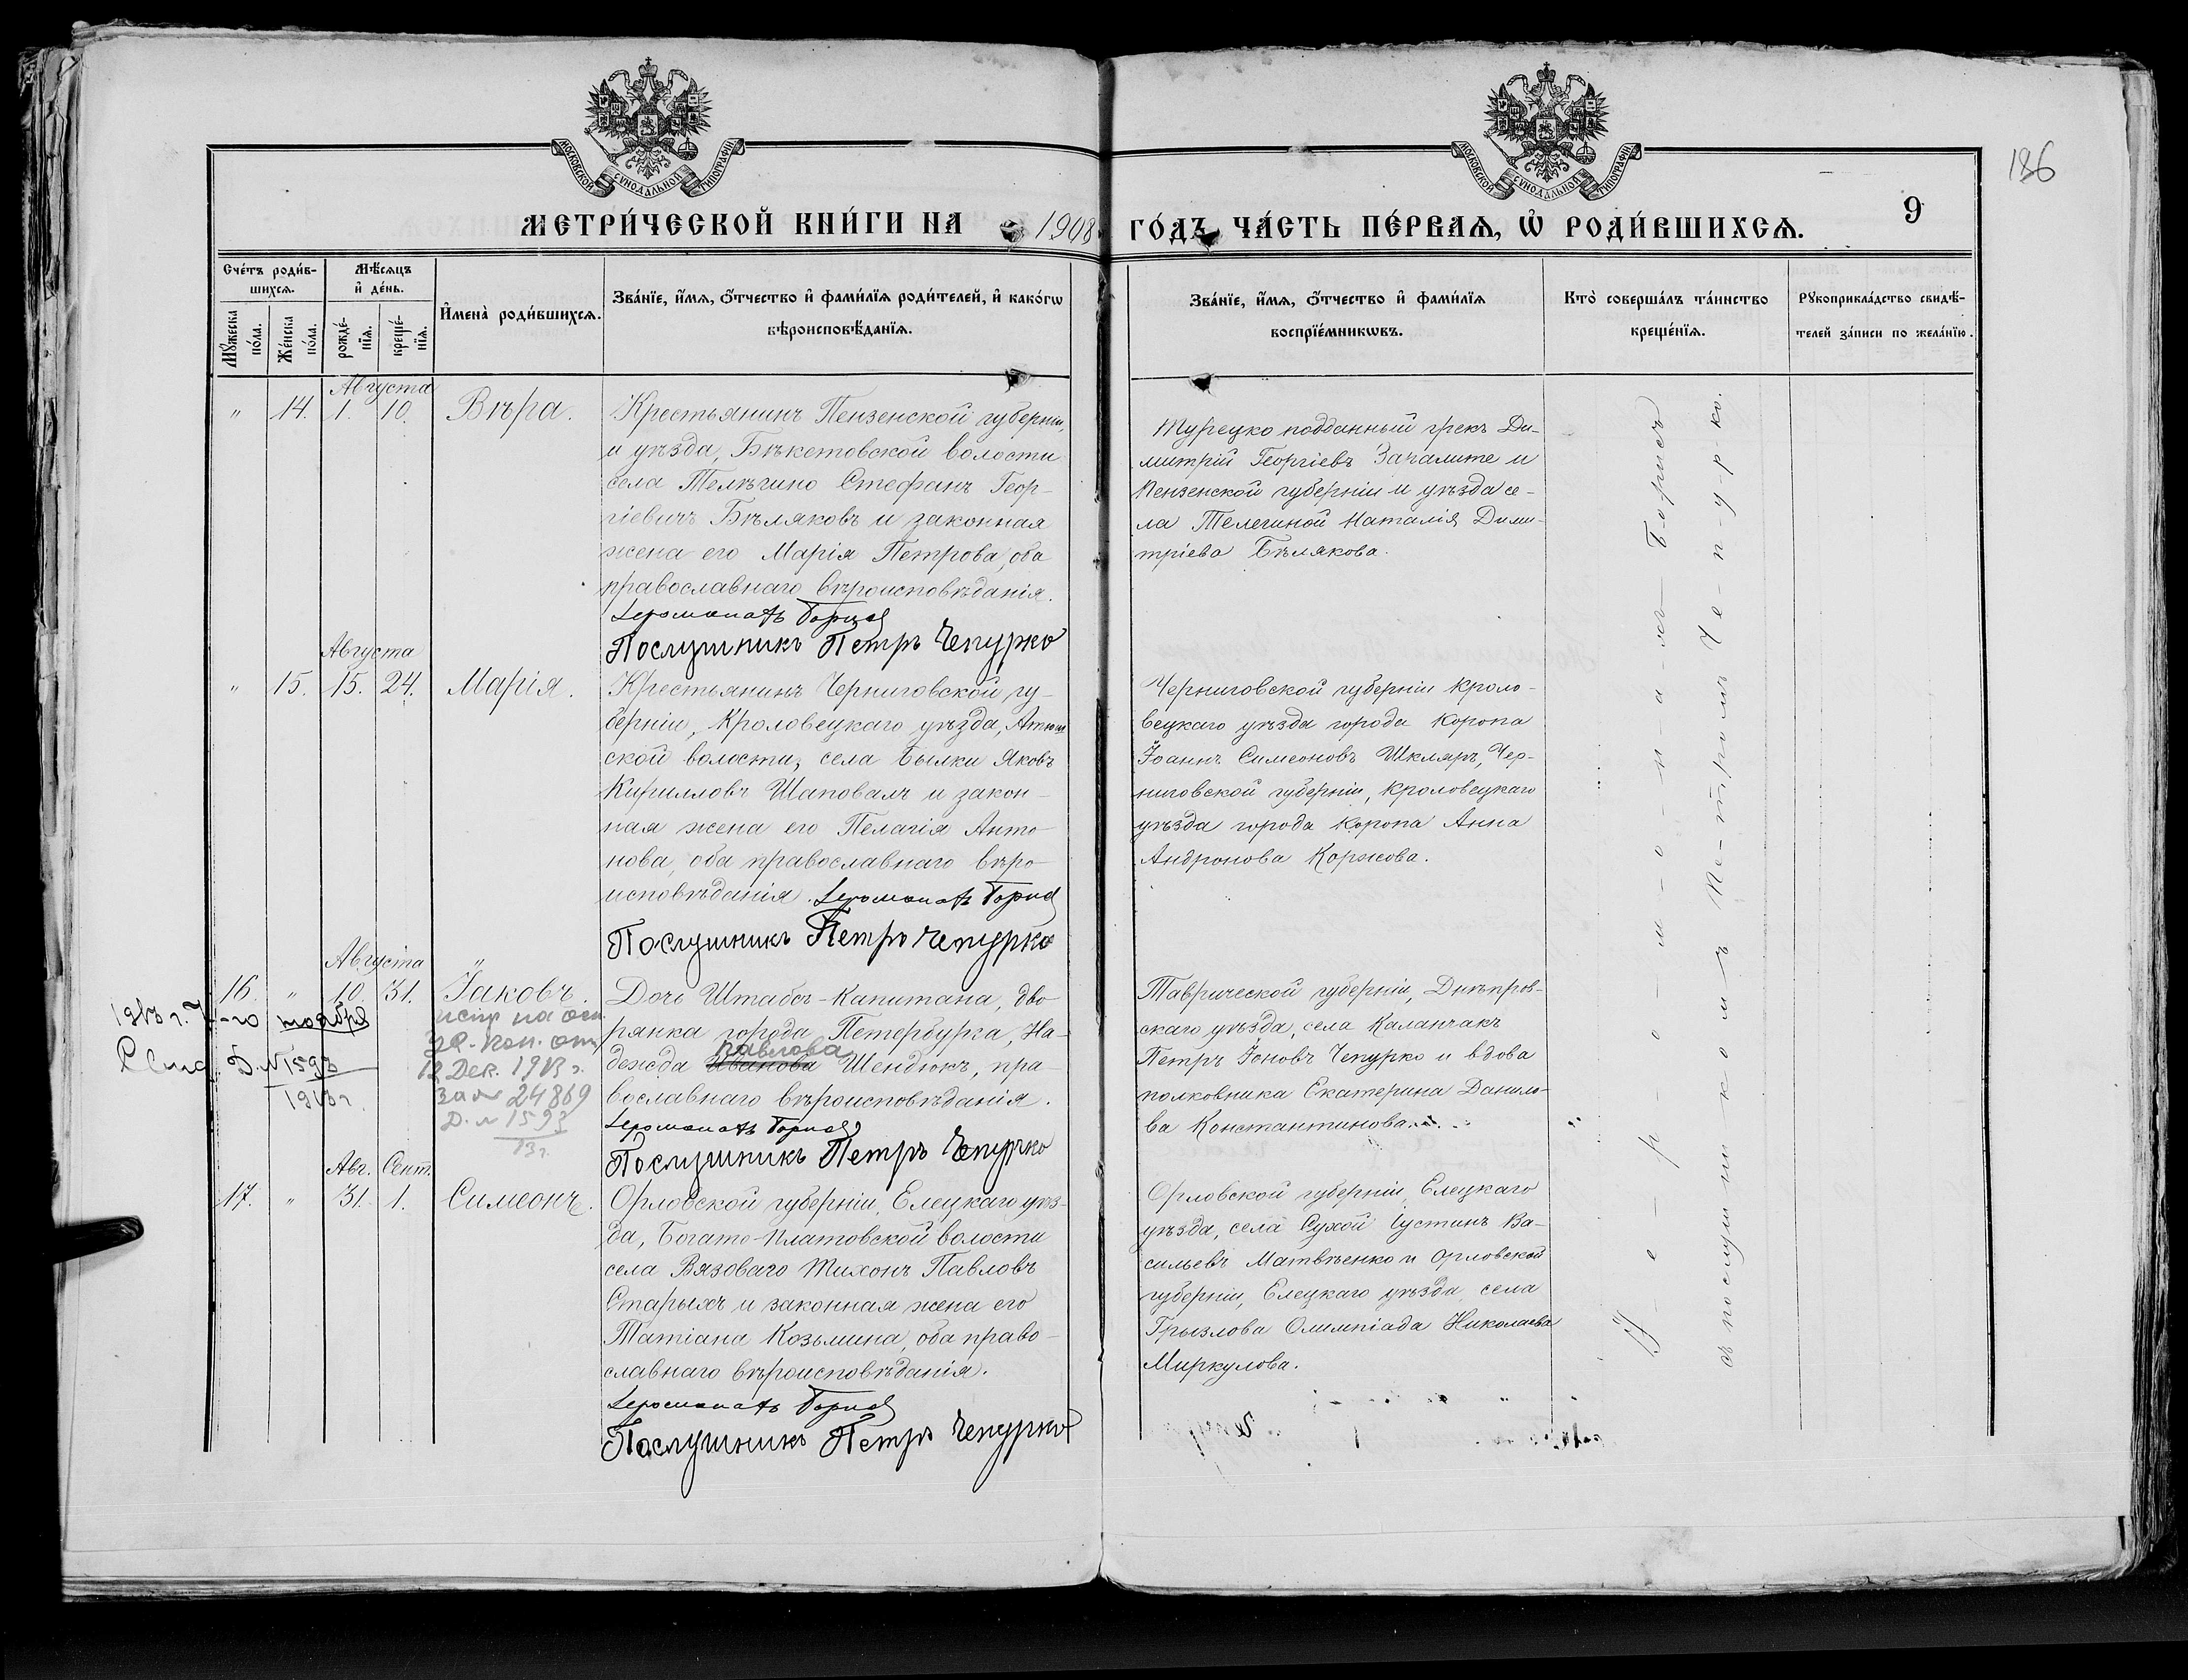 186
МОСКОВСКОЙ СѴНОДАЛЬНОЙ ТИПОГРАФІИ
МОСКОВСКОЙ СѴНОДАЛЬНОЙ ТИПОГРАФІИ
МЕТРИ́ЧЕСКОЙ КНИ́ГИ НА 1908 ГО́ДЪ, ЧА́СТЬ ПЕ́РВАѦ, Ѡ҆ РОДИ́ВШИХСѦ.
9
Сче́тъ роди́в-
шихсѧ.
Мꙋ́жеска по́ла.
Же́нска по́ла.
Мѣ́сѧцъ
и҆ де́нь.
рожде́-нїѧ.
креще́-нїѧ.
И҆мена̀ роди́вшихсѧ.
Зва́нїе, и҆́мѧ, ѻ҆́тчество и҆ фами́лїѧ роди́телей, и҆ како́гѡ
вѣроисповѣ́данїѧ.
Зва́нїе, и҆́мѧ, ѻ҆́тчество и҆ фами́лїѧ
воспрїе́мникѡвъ.
Кто̀ соверша́лъ та́инство
креще́нїѧ.
Рꙋкоприкла́дство свидѣ́-
телей за́писи по жела́нїю.
Августа
" 14. 1. 10. Вѣра.
Крестьянинъ Пензенской губерніи,
и уѣзда, Бѣкетовской волости
села Телѣгино Стефанъ Геор-
гіевичъ Бѣляковъ и законная
жена его Марія Петрова, оба
православнаго вѣроисповѣданія.
Іеромонахъ Борисъ
Послушникъ Петръ Чепурко
Турецко подданный грекъ Ди-
митрій Георгіевъ Зачалите и
Пензенской губерніи и уѣзда се-
ла Телегиной Наталія Дими-
тріева Бѣлякова.
Августа
" 15. 15. 24. Марія.
Крестьянинъ Черниговской гу-
берніи, Кроловецкаго уѣзда, Атюш
ской волости, села Былки Яковъ
Кирилловъ Шаповалъ и закон-
ная жена его Пелагія Анто-
нова, оба православнаго вѣро-
исповѣданія. Іеромонахъ Борисъ
Послушникъ Петръ Чепурко
Черниговской губерніи Кроло-
вецкаго уѣзда города Коропа
Іоаннъ Симеоновъ Шкляръ, Чер-
ниговской губерніи, Кроловецкаго
уѣзда города Коропа Анна
Андронова Коржова.
Августа
16. " 10. 31. Іаковъ.
Дочь Штабсъ-Капитана, дво
рянка города Петербурга, На-
дежда Иванова Павлова Шендюкъ, пра-
вославнаго вѣроисповѣданія.
Іеромонахъ Борисъ
Послушникъ Петръ Чепурко
1913 г. 7
-го ноября
Д. № 1593
1913 г.
испр на осн.
ук. кон. отъ
12 Дек. 1913 г.
за № 24869
Д. № 1593
13 г.
Таврической губерніи, Днѣпров-
скаго уѣзда, села Каланчакъ
Петръ Іоновъ Чепурко и вдова
полковника Екатерина Данило-
ва Константинова.
Авг. Сент.
17. " 31. 1. Симеонъ.
Орловской губерніи, Елецкаго уѣз-
да, Богато-Платовской волости
села Вязоваго Тихонъ Павловъ
Старыхъ и законная жена его
Татіана Козьмина, оба право-
славнаго вѣроисповѣданія.
Іеромонахъ Борисъ
Послушникъ Петръ Чепурко
Орловской губерніи, Елецкаго
уѣзда, села Сухой Іустинъ Ва-
сильевъ Матвѣенко и Орловской
губерніи, Елецкаго уѣзда, села
Грызлова Олимпіада Николаева
Миркулова.
І-е-р-о-м-о-н-а-хъ Борисъ
съ послушникомъ Пе-тромъ Че-пу-р-ко.